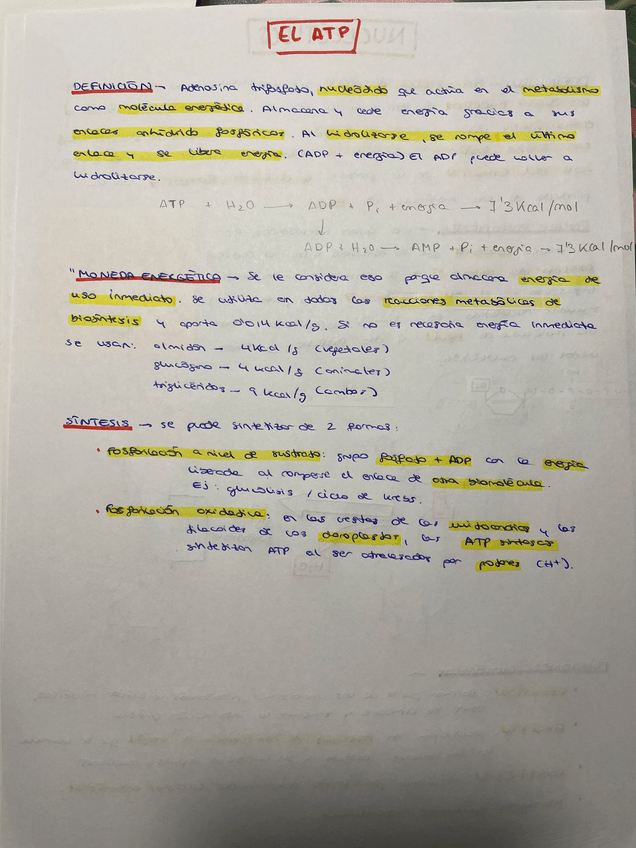 EL ATP
DEFINICIÓN → Adenosina trifosfato, nucleótido que actúa en el metabolismo
como molécula energética. Almacena y cede energía gracias a sus
enlaces anhídrido fosfóricos. Al hidrolizarse, se rompe el último
enlace y se libera energía. (ADP + energía) El ADP puede volver a
hidrolizarse.
ATP + H₂O → ADP + Pi + energía → 7'3 Kcal/mol
↓
ADP + H₂O → AMP + Pi + energía → 7'3 Kcal/mol
"MONEDA ENERGÉTICA → Se le considera eso porque almacena energía de
uso inmediato. Se utiliza en todas las reacciones metabólicas de
biosíntesis y aporta 0'014 kcal/g. Si no es necesaria energía inmediata
se usan: almidón → 4Kcal/g (vegetales)
glucógeno → 4 kcal/g (animales)
triglicéridos → 9 kcal/g (ambos)
SÍNTESIS → se puede sintetizar de 2 formas:
• Fosforilación a nivel de sustrato: grupo fosfato + ADP con la energía
liberada al romperse el enlace de otra biomolécula.
Ej: glucólisis / ciclo de krebs.
• Fosforilación oxidativa: en las crestas de las mitocondrias y los
tilacoides de los cloroplastos, las ATP sintasas
sintetizan ATP al ser atravesadas por protones (H+).